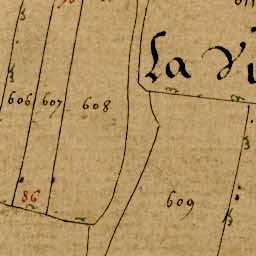 La Vi
606 607 608
86
609